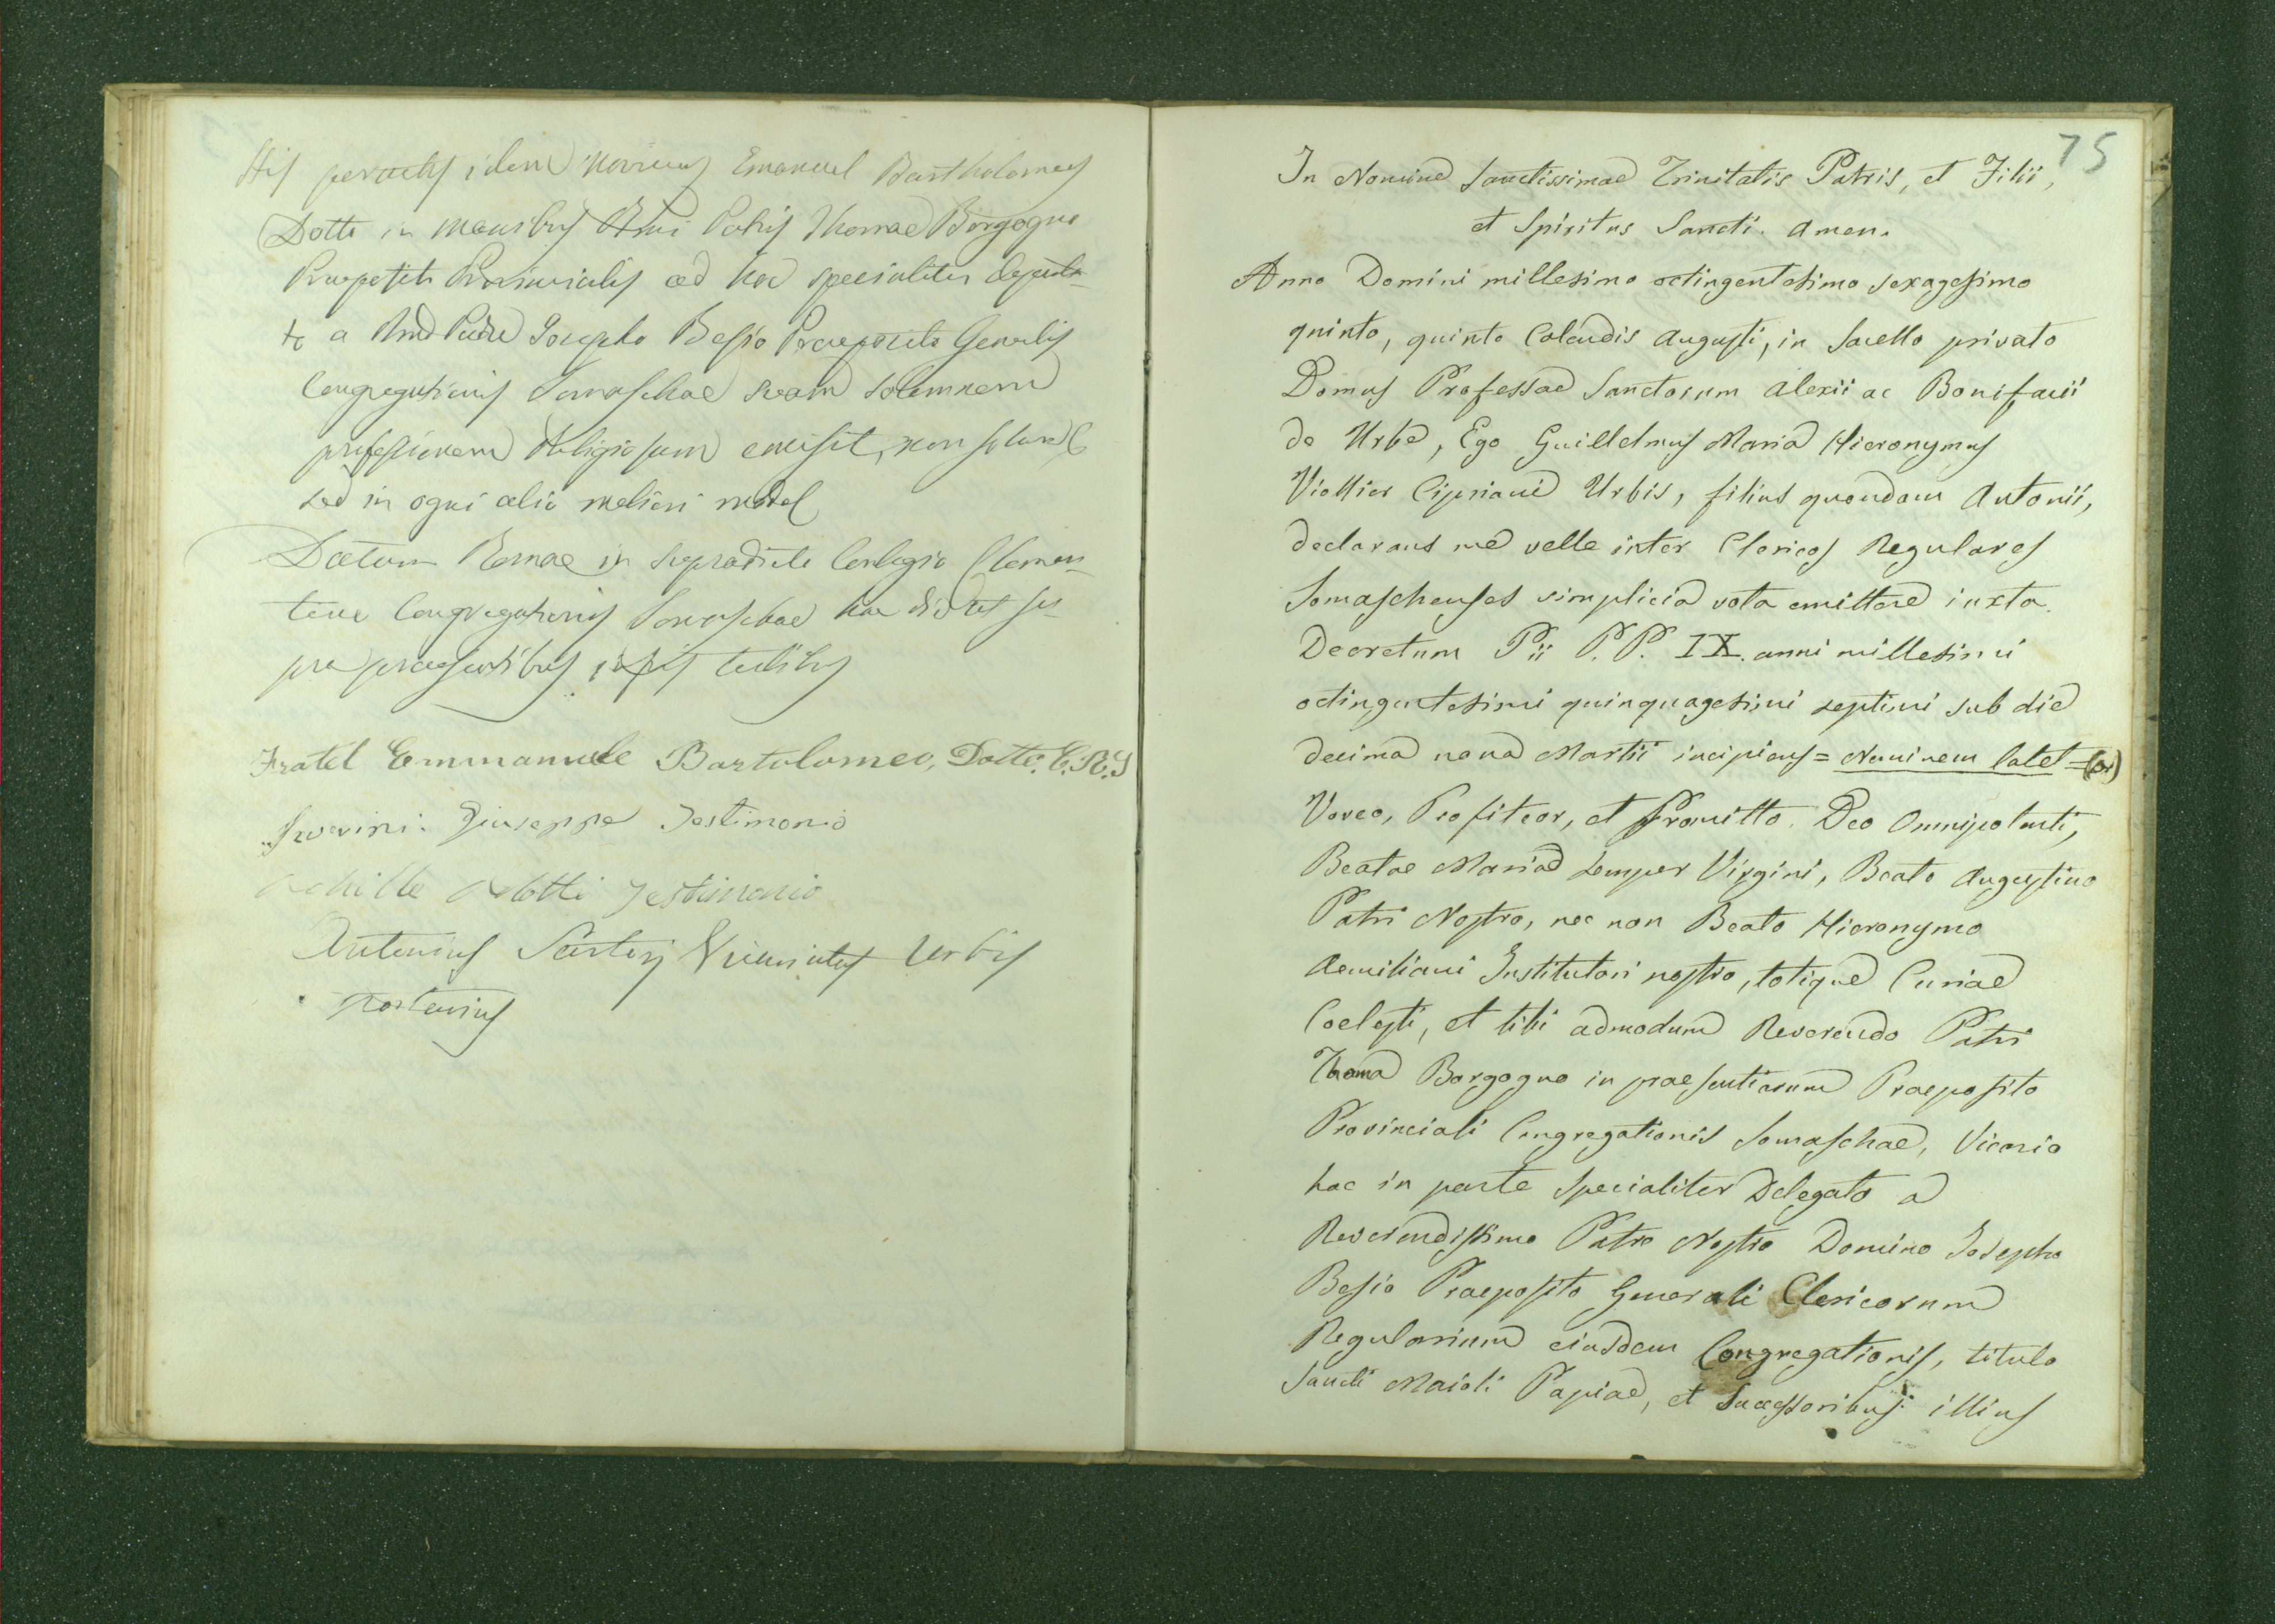 His peractis idem Novicius Emanuel Bartholomeus
Dotti in manibus Rmi Patris Thomae Borgogno
Praepositi Provincialis ad hoc specialiter deputa-
ti a Rmo Patre Josepho Besio Praeposito Generalis
Congregationis Somaschae suam solemnem
professionem Religiosam emisit, non solum
sed in ogni alio meliori modo
Datum Romae in supradicto Collegio Clemen-
tino Congregationis Somaschae hac die ut su-
pra praesentibus testibus
Fratel Emmanuele Bartolomeo, Dotti. C.R.S
Severini Giuseppe Testimonio
Achille Testimonio
Antonius Sartori Vicariatus Urbis
Notarius
75
In Nomine Sanctissimae Trinitatis Patris, et Filii,
et Spiritus Sancti. Amen.
Anno Domini millesimo octingentesimo sexagesimo
quinto, quinto Calendis Augusti, in Sacello privato
Domus Professae Sanctorum Alexii ac Bonifacii
de Urbe, Ego Guillelmus Maria Hieronymus
Viollier Cipriani Urbis, filius quondam Antonii,
declarans me velle inter Clericos Regulares
Somaschenses simplicia vota emittere iuxta
Decretum Pii P.P. IX. anni millesimi
octingentesimi quinquagesimi septimi sub die
decima nona Martii incipiens = Neminem latet =
Voveo, Profiteor, et Promitto Deo Omnipotenti,
Beatae Mariae semper Virgini, Beato Augustino
Patri Nostro, nec non Beato Hieronymo
Aemiliani Institutori nostro, totique Curiae
Coelesti, et tibi admodum Reverendo Patri
Thoma Borgogno in praesentiarum Praeposito
Provinciali Congregationis Somaschae, Vicario
hac in parte specialiter Delegato a
Reverendissimo Patre Nostro Domino Josepho
Besio Praeposito Generali Clericorum
Regularium eiusdem Congregationis, titulo
Sancti Maioli Papiae, et Successoribus illius